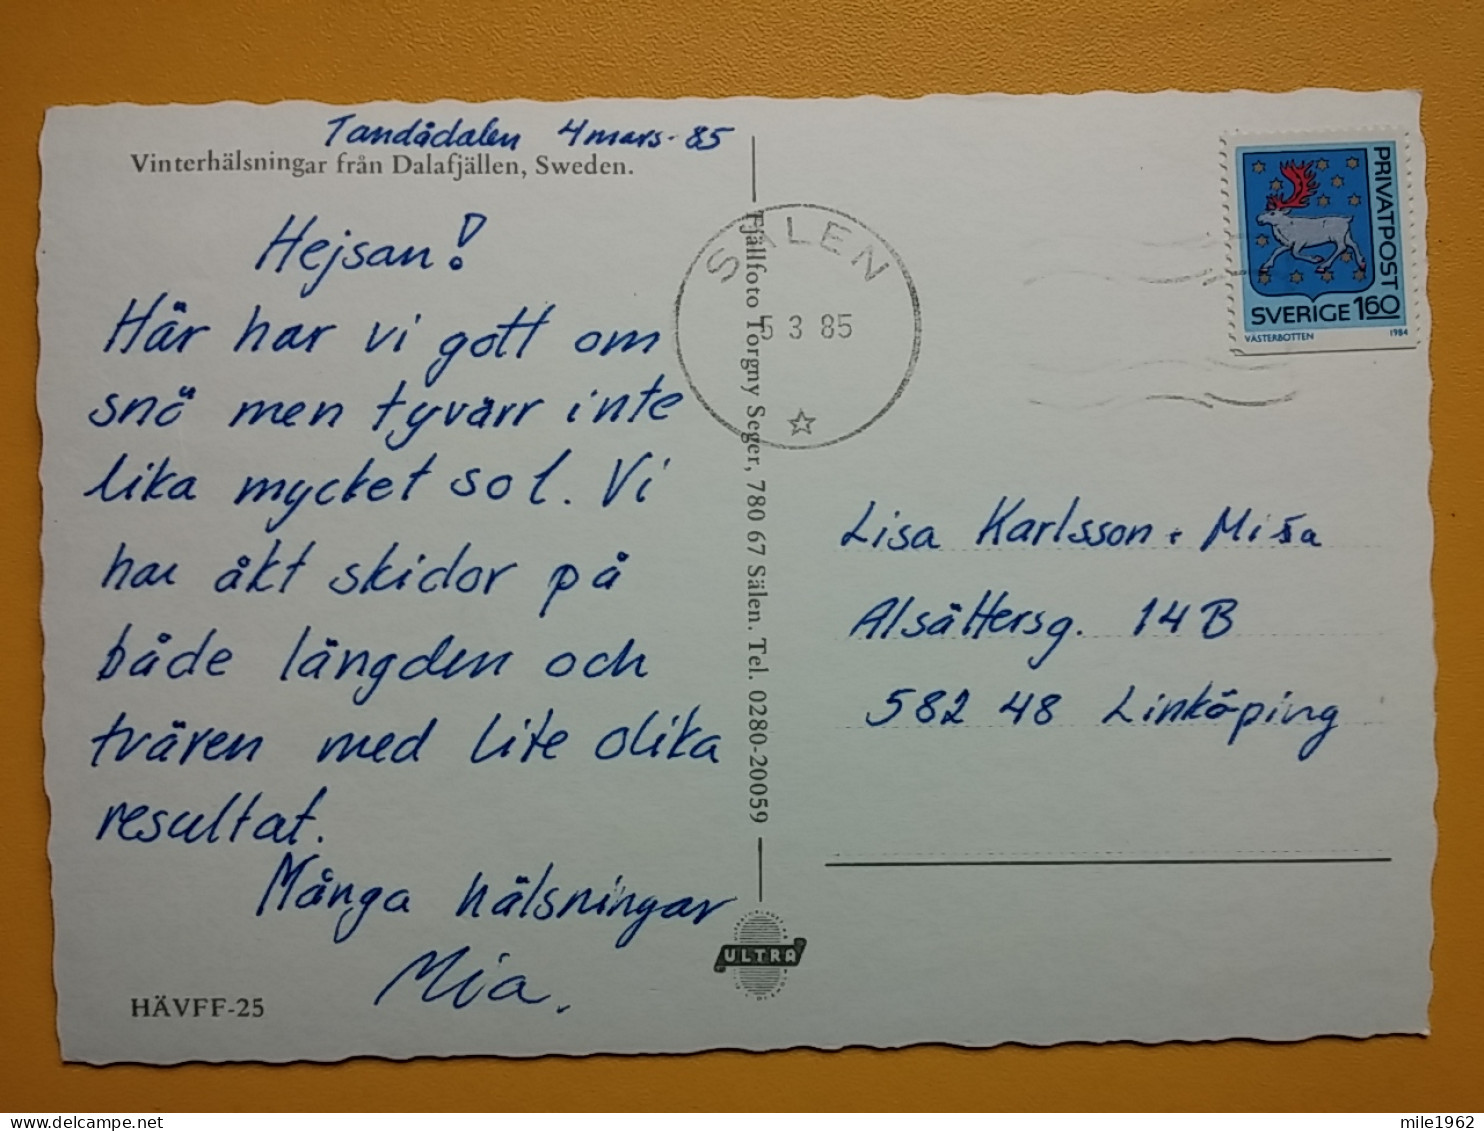 Tandådalen 4 mars - 85
Vinterhälsningar från Dalafjällen, Sweden.
Hejsan!
Här har vi gott om
snö men tyvärr inte
lika mycket sol. Vi
har åkt skidor på
både längden och
tvären med lite olika
resultat.
Många hälsningar
Mia.
HÄVFF-25
Fjällfoto Torgny Seger, 780 67 Sälen. Tel. 0280-20059
ULTRA
SÄLEN
5 3 85
PRIVATPOST
SVERIGE 160
VÄSTERBOTTEN 1984
Lisa Karlsson
Alsättersg. 14 B
582 48 Linköping
mile1962